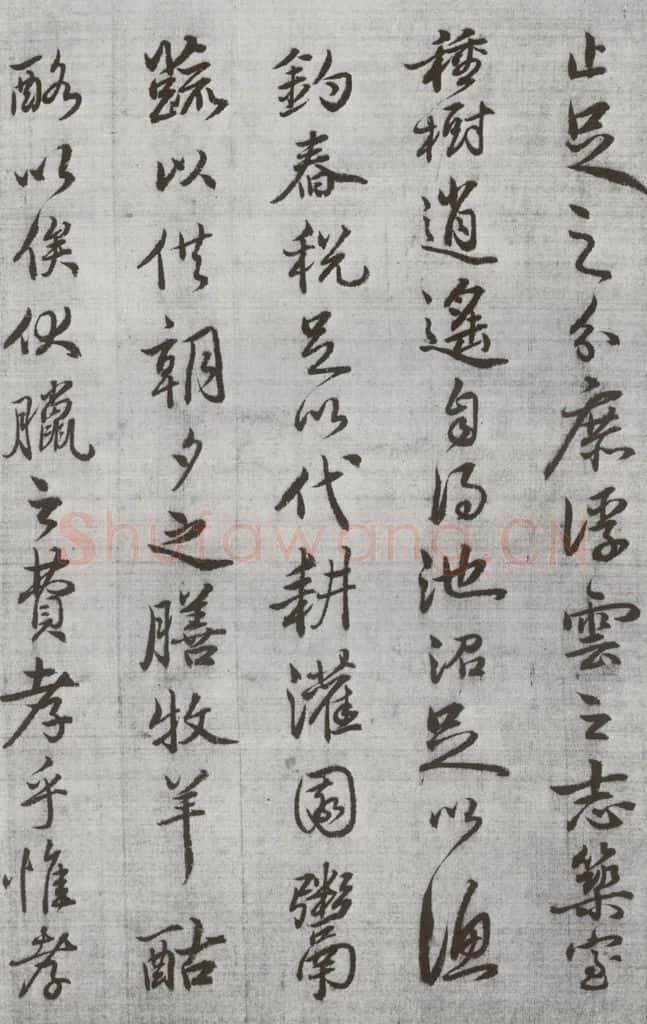 止足之分庶浮雲之志築室
種樹逍遙自得池沼足以漁
釣春税足以代耕灌園鬻
蔬以供朝夕之膳牧羊酤
酪以俟伏臘之費孝乎惟孝
Shufawang.CN